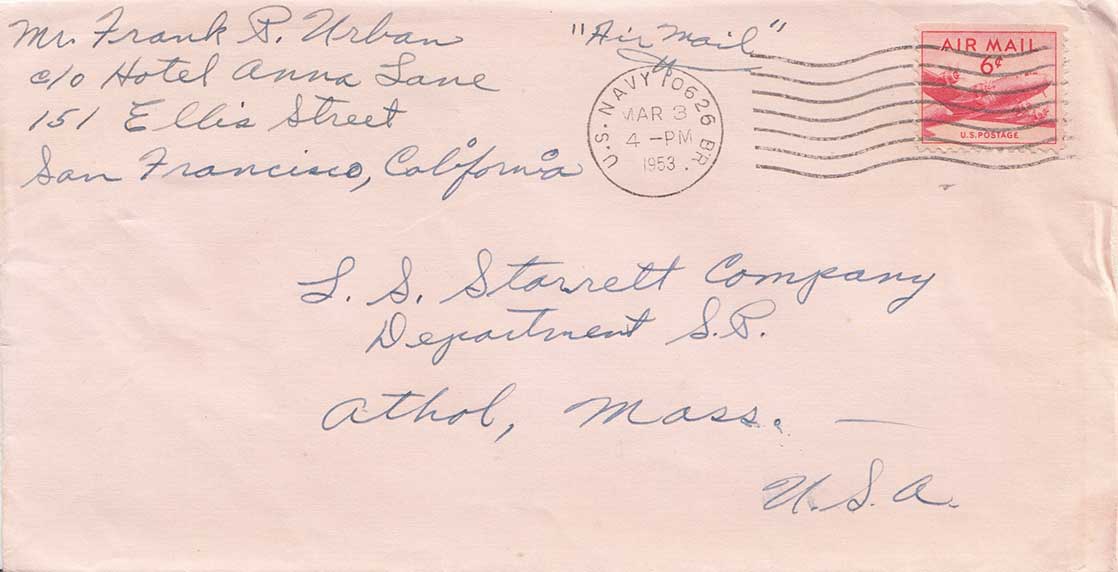 Mr. Frank P. Urban
c/o Hotel Anna Lane
151 Ellis Street
San Francisco, California
"Air Mail"
U.S. NAVY 10626 BR.
MAR 3
4 -PM
1953
AIR MAIL
6¢
U.S. POSTAGE
L. S. Starrett Company
Department S.P.
Athol, Mass. —
U.S.A.